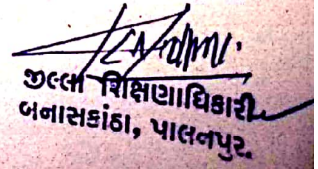 જીલ્લા શિક્ષણાધિકારી
બનાસકાંઠા, પાલનપુર.